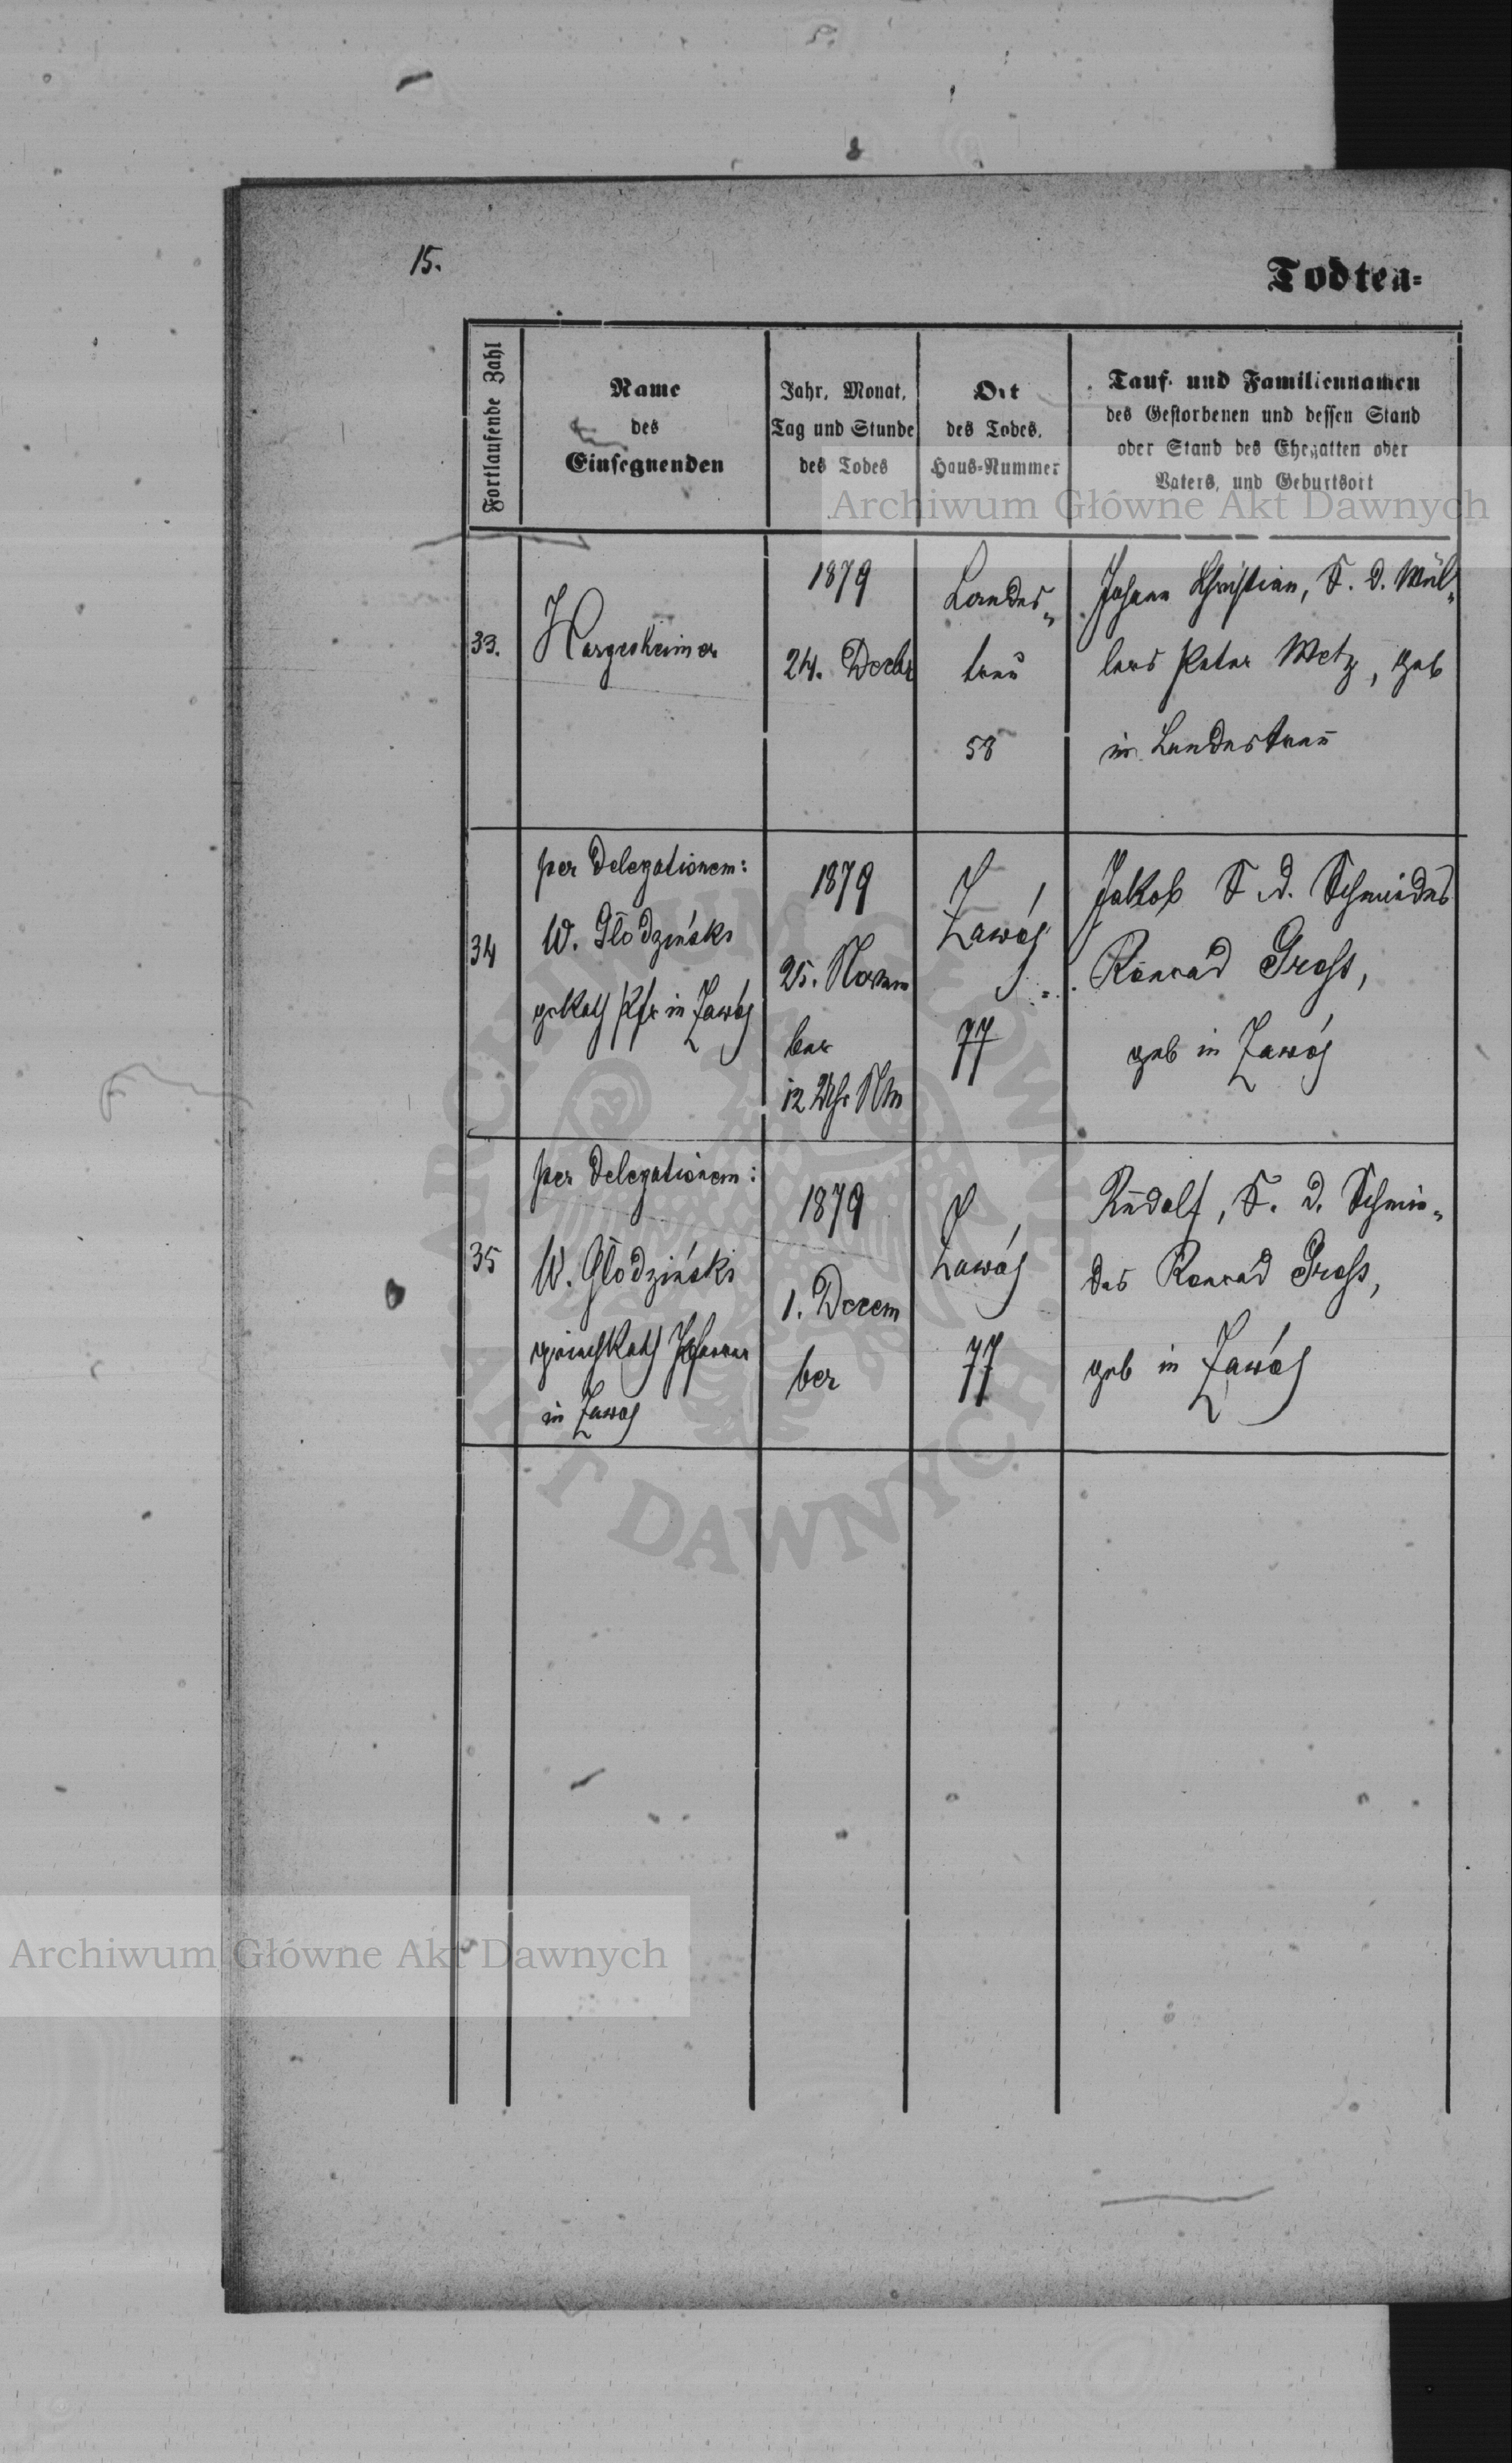 15.
Todten=
Fortlaufende Zahl
Name
des
Einsegnenden
Jahr, Monat,
Tag und Stunde
des Todes
Ort
des Todes,
Haus=Nummer
Tauf- und Familiennamen
des Gestorbenen und dessen Stand
oder Stand des Ehegatten oder
Vaters, und Geburtsort
Archiwum Główne Akt Dawnych
33.
Hargesheimer
1879
24. Decbr
Landes„
treü
58
Johann Christian, S. d. Mül„
lers Peter Metz, geb
in Landestreü
34
per Delegationem:
W. Głodziński
grkath Pfr in Zawój
1879
25. Novem
ber
12 Uhr NM
Zawój
77
Jakob S d. Schmiedes
Konrad Gross,
geb in Zawój
35
per Delegationem:
W. Głodziński
griechkath Pfarrer
in Zawoj
1879
1. Decem
ber
Zawój
77
Rudolf, S. d. Schmie„
des Konrad Gross,
geb in Zawój
ARCHIWUM GŁÓWNE AKT DAWNYCH
Archiwum Główne Akt Dawnych